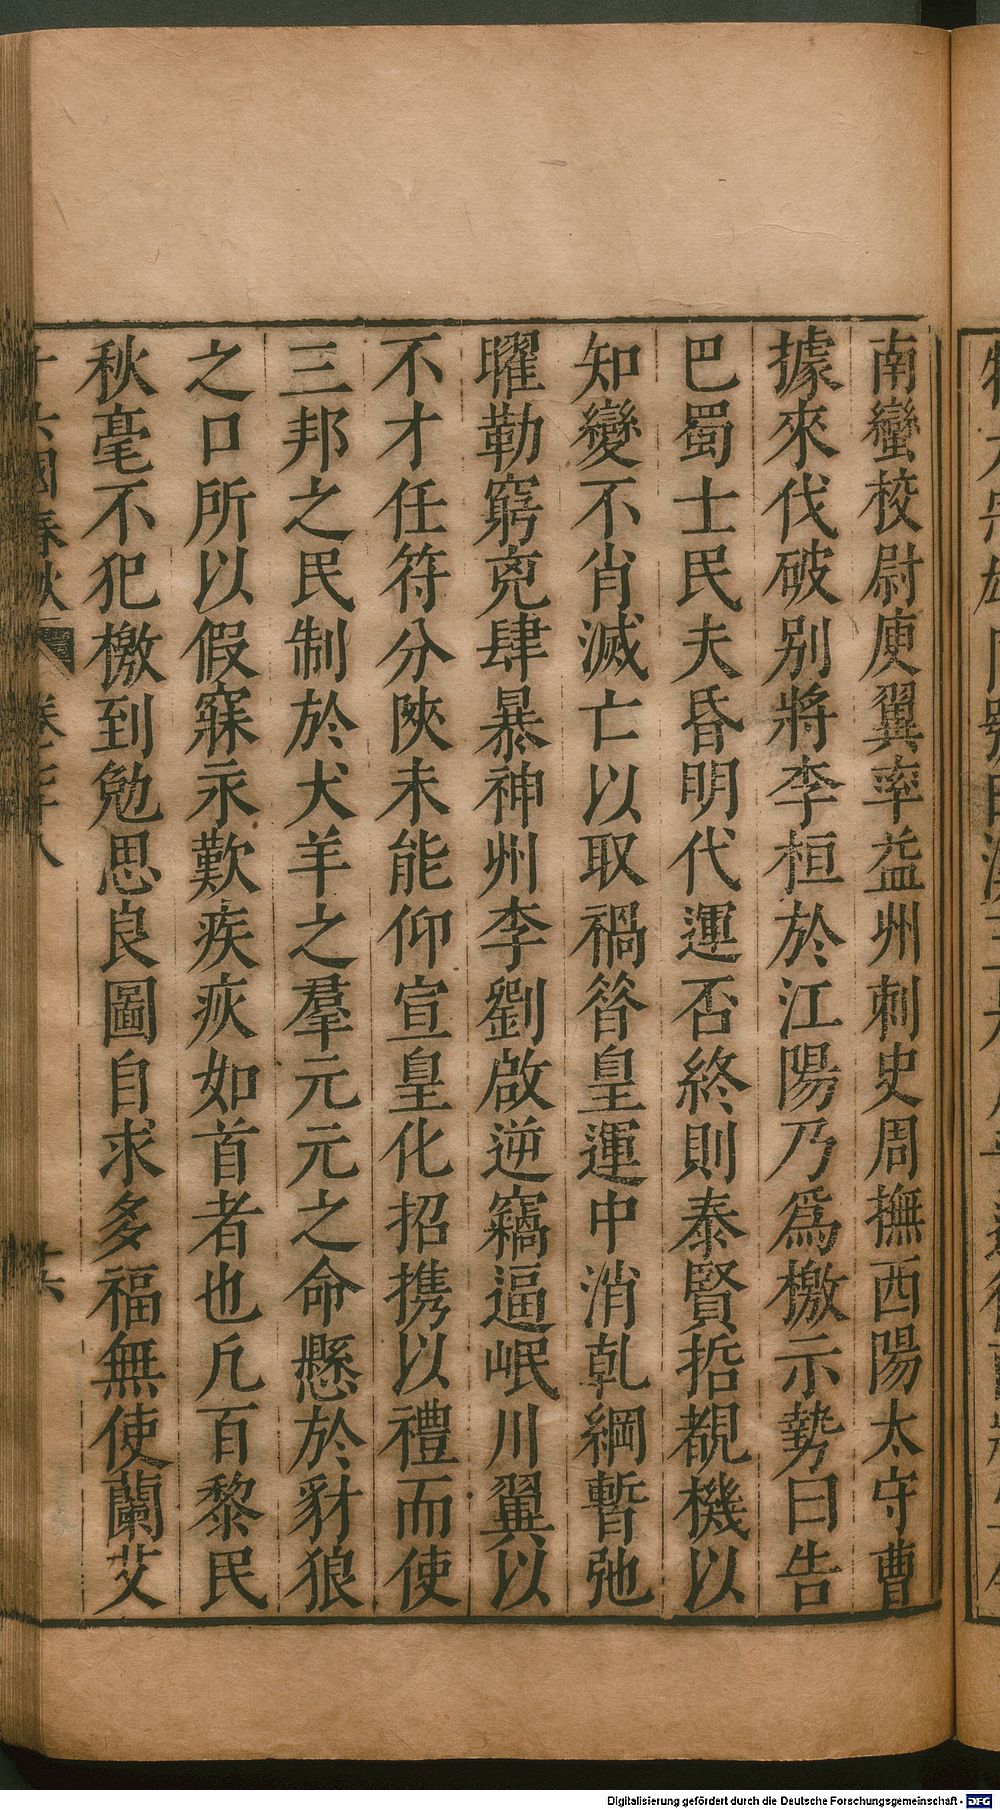 南蠻校尉庾翼率益州刺史周撫西陽太守曹
據來伐破別將李桓於江陽乃爲檄示勢曰告
巴蜀士民夫昏明代運否終則泰賢哲覩機以
知變不肖滅亡以取禍昝皇運中消乹綱暫弛
曜勒窮兇肆暴神州李劉啟逆竊逼岷川翼以
不才任符分陝未能仰宣皇化招携以禮而使
三邦之民制於犬羊之羣元元之命懸於豺狼
之口所以假寐永歎疾疢如首者也凡百黎民
秋毫不犯檄到勉思良圖自求多福無使蘭艾
十六國春秋 卷七十八 十六
Digitalisierung gefördert durch die Deutsche Forschungsgemeinschaft - DFG